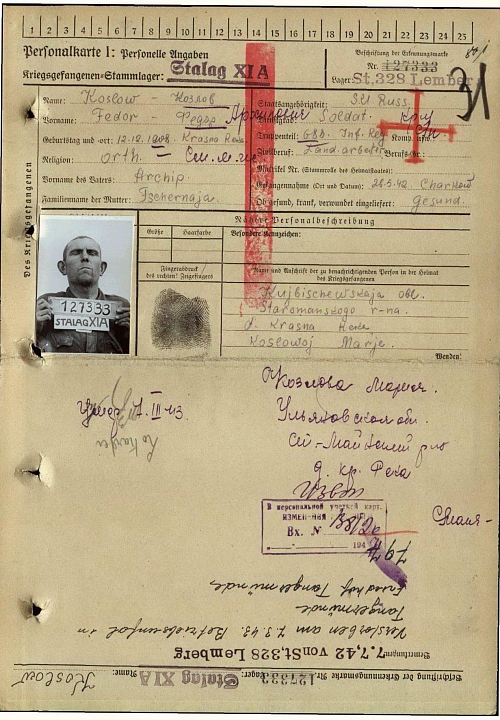 1 2 3 4 5 6 7 8 9 10 11 12 13 14 15 16 17 18 19 20 21 22 23 24 25
Personalkarte I: Personelle Angaben
Kriegsgefangenen-Stammlager: Stalag XI A
Beschriftung der Erkennungsmarke
Nr. 127333
Lager: St.328 Lember
Des Kriegsgefangenen
Name: Koslow - Козлов
Vorname: Fedor - Федор Архипович
Geburtstag und -ort: 12.12.1908 Krasna Reka
Religion: Orth.
Vorname des Vaters: Archip
Familienname der Mutter: Tschernaja
Staatsangehörigkeit: Russ.
Dienstgrad: Soldat
Truppenteil: Inf. Reg. Komp. usw.:
Zivilberuf: Landarbeiter Berufs-Gr.:
Matrikel Nr. (Stammrolle des Heimatstaates):
Gefangennahme (Ort und Datum): 28.5.42 Charkow
Ob gesund, krank, verwundet eingeliefert: Gesund.
Nähere Personalbeschreibung
Größe Haarfarbe Besondere Kennzeichen:
Fingerabdruck
des rechten Zeigefingers
127333
STALAG XI A
Name und Anschrift der zu benachrichtigenden Person in der Heimat
des Kriegsgefangenen
Kujbischewskaja obl.
Staromanskogo r-na
d. Krasna Reka
Koslowoj Marje.
Wenden!
Козлова Мария.
Умер 7.III 43.
Ульяновская об.
д. кр. Река
В персональной учетной карт.
ИЗМЕНЕНИЯ
Вх. N
194
797
Friedhof Tangermünde
Tangermünde
Verstorben am 7.3.43.
Bemerkungen: 7.7.42 von St.328 Lemberg
Beschriftung der Erkennungsmarke Nr. 127333 Lager: Stalag XI A Name: Koslow